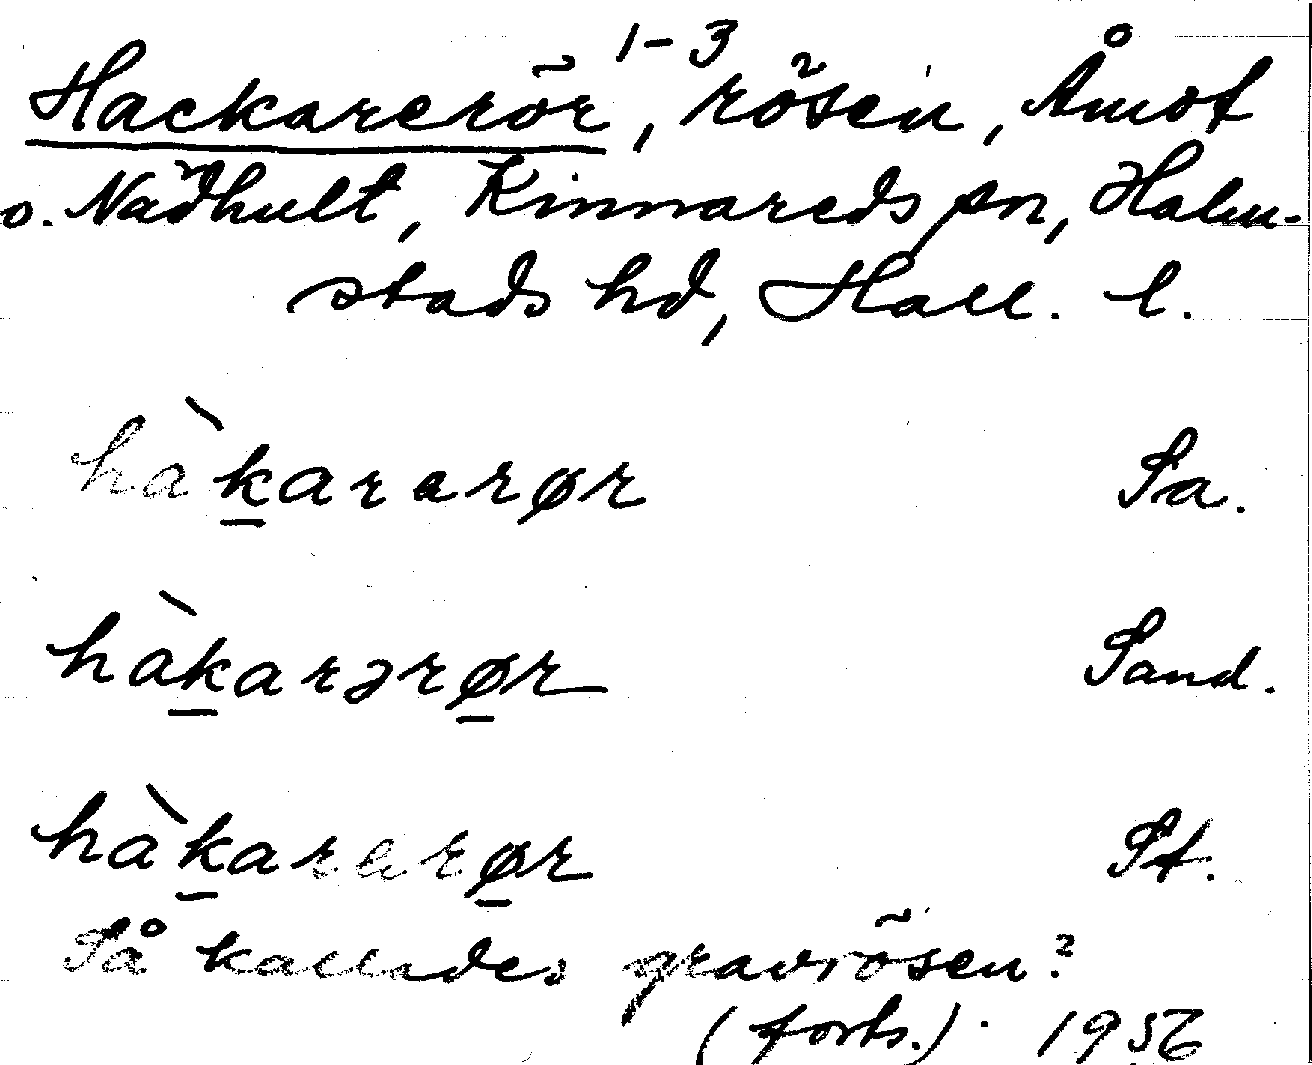 Hackarerör 1-3, rösen, Åmot
o. Nädhult, Kinnareds sn, Halm-
stads hd, Hall. l.
hàkararør Sa.
hàkarərør Sand.
hàkarerør St.
Så kallades gravrösen?
(forts.). 1956